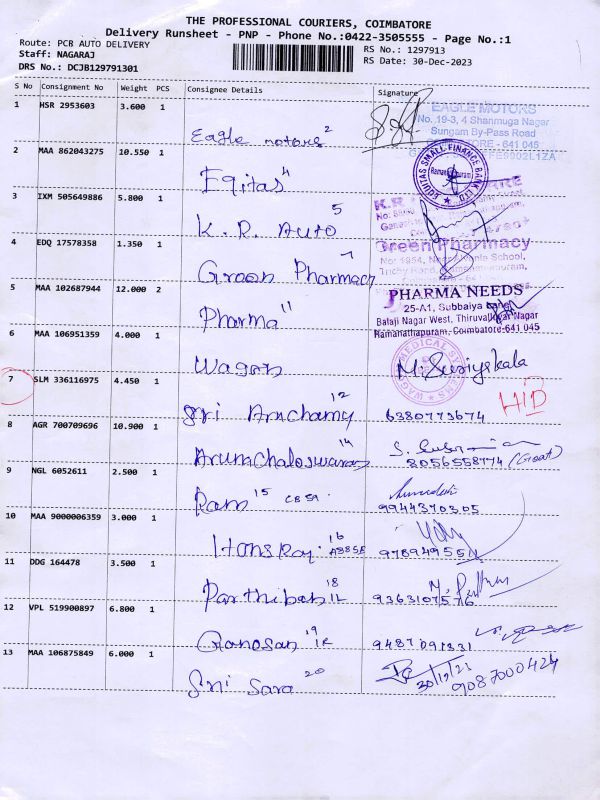 THE PROFESSIONAL COURIERS, COIMBATORE
Delivery Runsheet - PNP - Phone No.:0422-3505555 - Page No.:1
Route: PCB AUTO DELIVERY
RS No.: 1297913
Staff: NAGARAJ
RS Date: 30-Dec-2023
DRS No.: DCJB129791301
S No Consignment No Weight PCS Consignee Details Signature
1 HSR 2953603 3.600 1
Eagle motors 2
EAGLE MOTORS
No. 19-3, 4 Shanmuga Nagar
Sungam By-Pass Road
641 045
2 MAA 862043275 10.550 1
Eqitas 4
EQUITAS SMALL FINANCE BANK LTD.
3 IXM 505649886 5.800 1
K. R. Auto 5
K.R.
4 EDQ 17578358 1.350 1
Green Pharmacy 7
Green Pharmacy
No: 1954, School,
Trichy Road,
5 MAA 102687944 12.000 2
Pharma 11
PHARMA NEEDS
25-A1, Subbaiya
Balaji Nagar West, Thiruvalluvar Nagar
Ramanathapuram, Coimbatore-641 045
6 MAA 106951359 4.000 1
Wagon
MEDICAL SYSTEMS
M. Suriyakala
7 SLM 336116975 4.450 1
Sri Amchamy 12
6380773674
8 AGR 700709696 10.900 1
Arunchaleswaran 14
8056558774
9 NGL 6052611 2.500 1
Ram 15
9944370305
10 MAA 9000006359 3.000 1
Hons Raj 16
11 DDG 164478 3.500 1
Parthiban 18
9363107576
12 VPL 519900897 6.800 1
Ganesan 19
9487091331
13 MAA 106875849 6.000 1
Sri Sara 20
9087000424